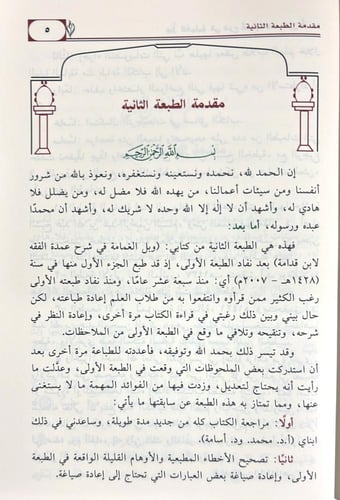 مقدمة الطبعة الثانية
٥
مقدمة الطبعة الثانية
بسم الله الرحمن الرحيم
إن الحمد لله، نحمده ونستعينه ونستغفره، ونعوذ بالله من شرور
أنفسنا ومن سيئات أعمالنا، من يهده الله فلا مضل له، ومن يضلل فلا
هادي له، وأشهد أن لا إله إلا الله وحده لا شريك له، وأشهد أن محمدًا
عبده ورسوله، أما بعد:
فهذه هي الطبعة الثانية من كتابي: (وبل الغمامة في شرح عمدة الفقه
لابن قدامة) بعد نفاد الطبعة الأولى، إذ قد طبع الجزء الأول منها في سنة
(١٤٢٨هـ - ٢٠٠٧م) أي: منذ سبعة عشر عامًا، ومنذ نفاد طبعته الأولى
رغب الكثير ممن قرأوه وانتفعوا به من طلاب العلم إعادة طباعته، لكن
حال بيني وبين ذلك رغبتي في قراءة الكتاب مرة أخرى، وإعادة النظر في
شرحه، وتنقيحه وتلافي ما وقع في الطبعة الأولى من الملاحظات.
وقد تيسر ذلك بحمد الله وتوفيقه، فأعددته للطباعة مرة أخرى بعد
أن استدركت بعض الملحوظات التي وقعت في الطبعة الأولى، وعدَّلت ما
رأيت أنه يحتاج لتعديل، وزدت فيها من الفوائد المهمة ما لا يستغنى
عنها، ومما تمتاز به هذه الطبعة عن سابقتها ما يأتي:
أولًا: مراجعة الكتاب كله من جديد مدة طويلة، وساعدني في ذلك
ابناي (أ.د. محمد. ود. أسامة).
ثانيًا: تصحيح الأخطاء المطبعية والأوهام القليلة الواقعة في الطبعة
الأولى، وإعادة صياغة بعض العبارات التي تحتاج إلى إعادة صياغة.